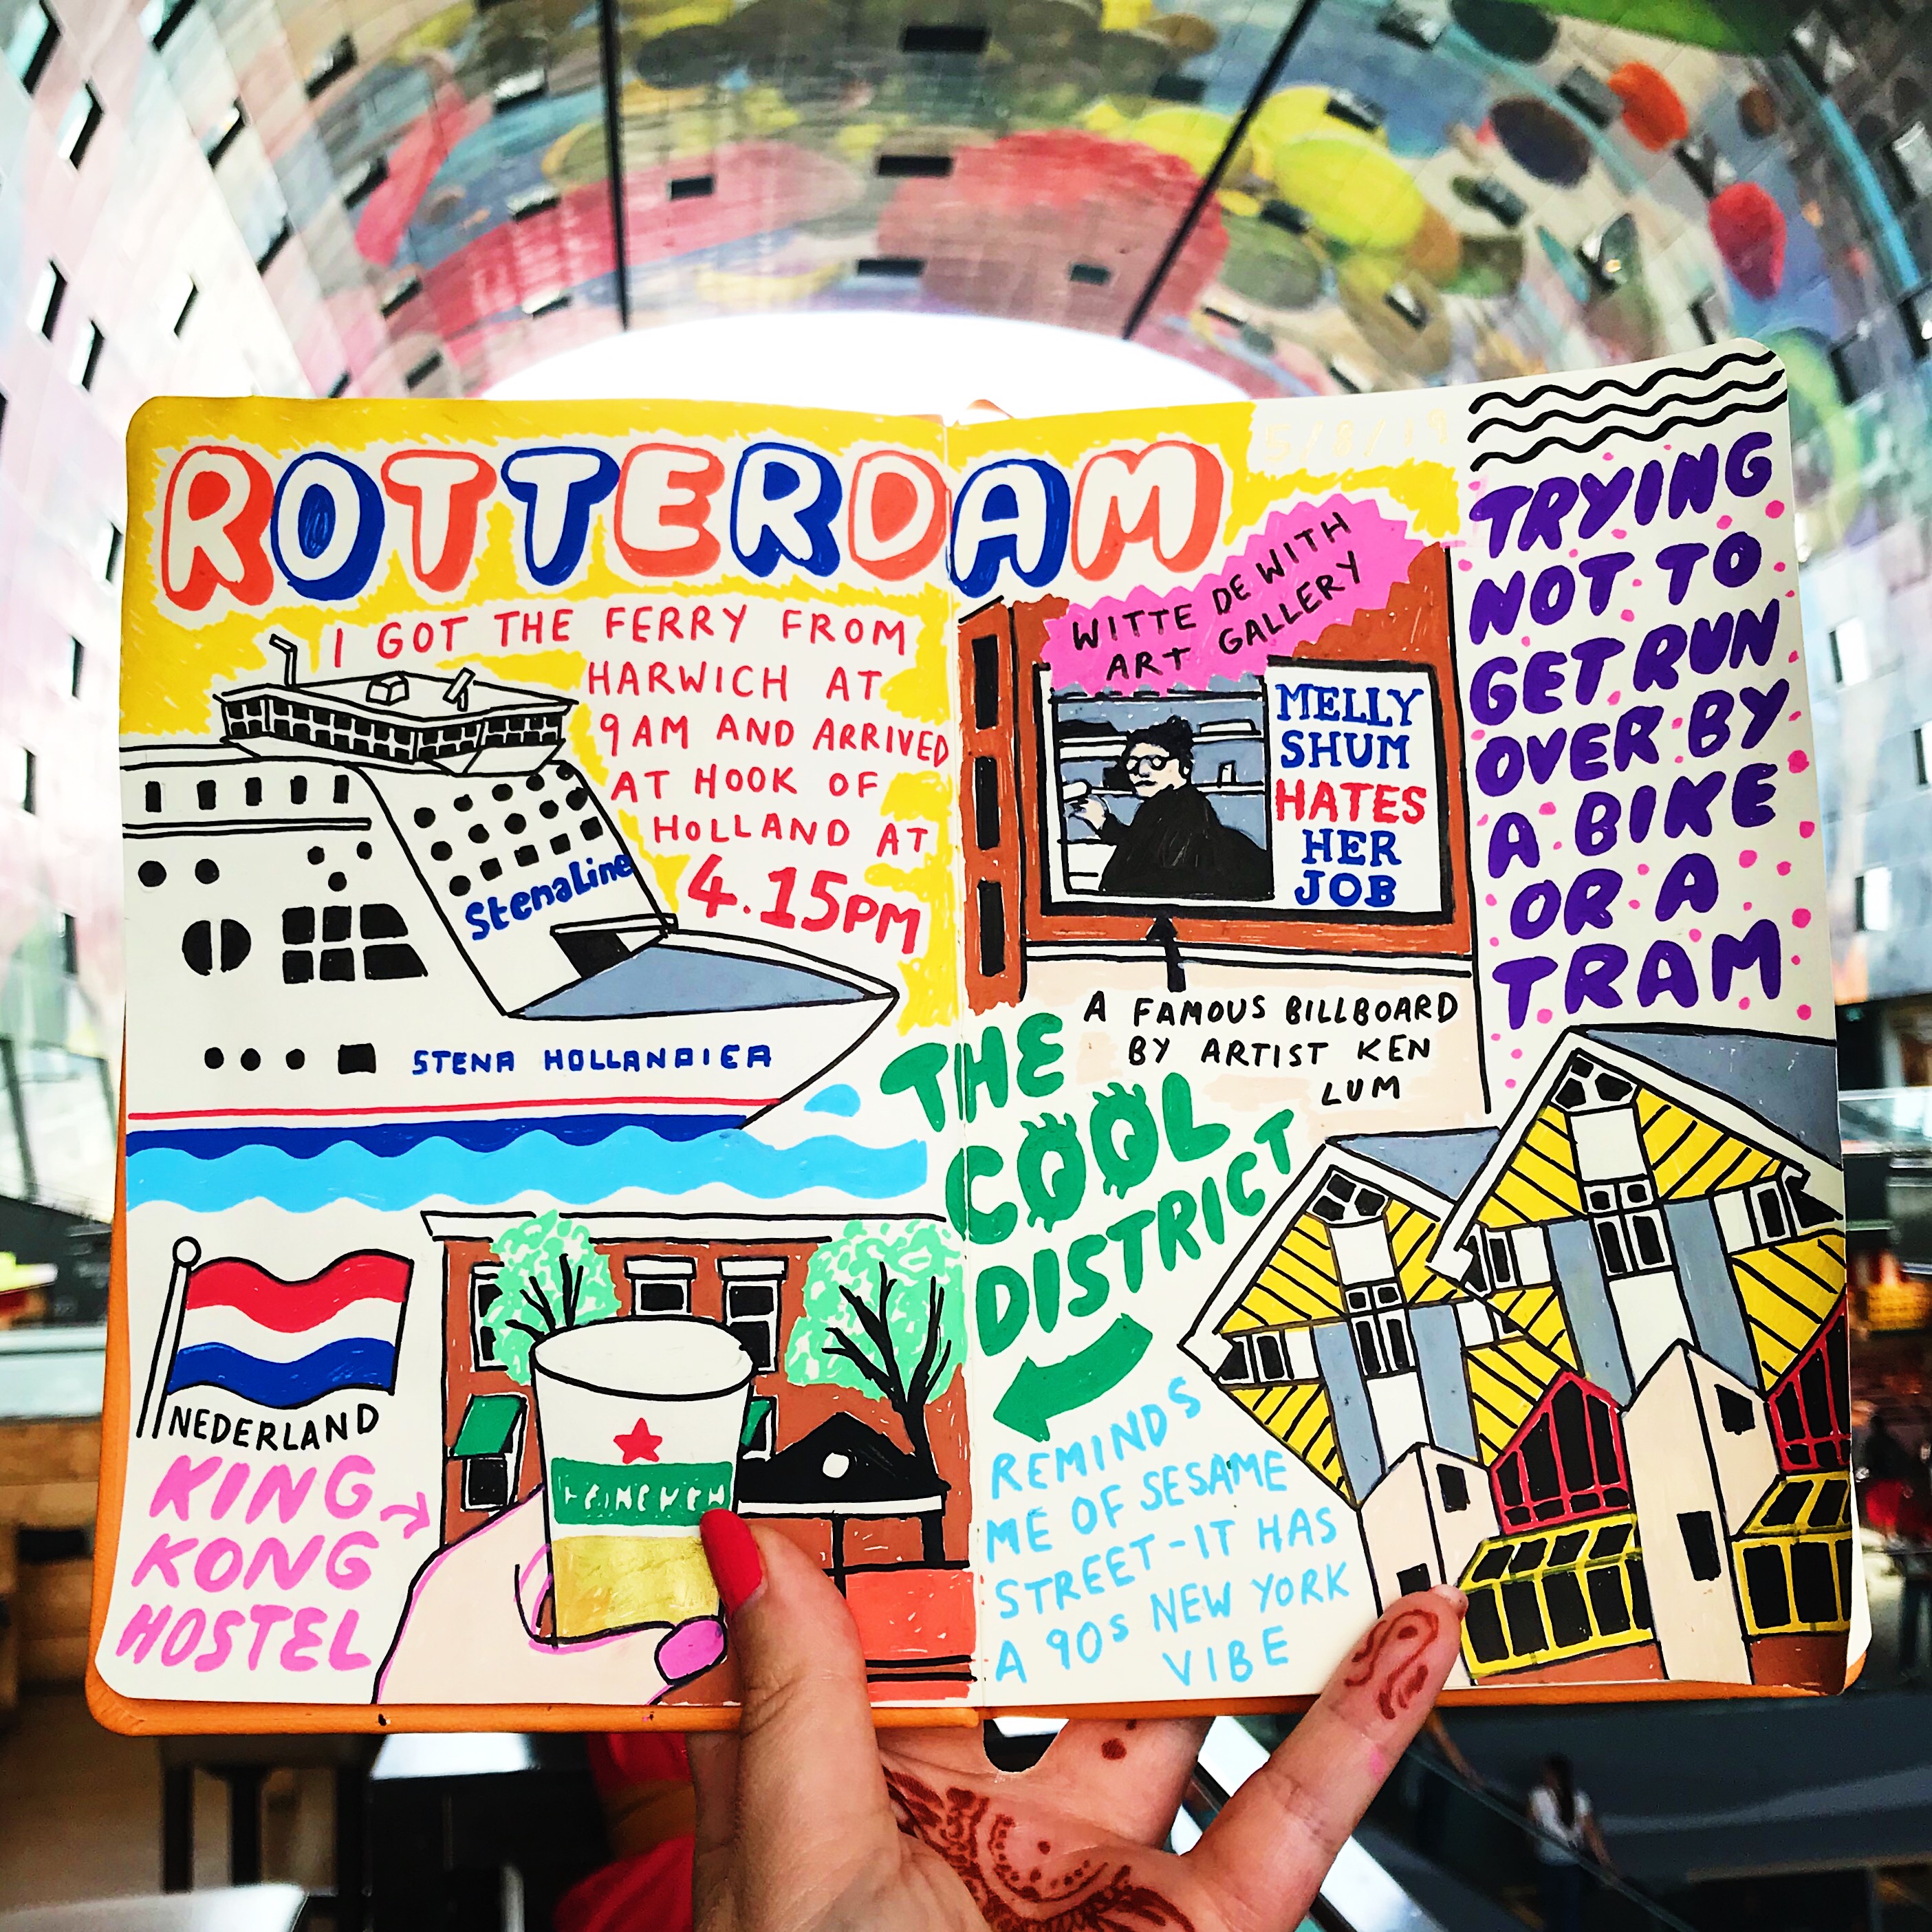 ROTTERDAM
5/8/19
I GOT THE FERRY FROM
HARWICH AT
9AM AND ARRIVED
AT HOOK OF
HOLLAND AT
4.15PM
StenaLine
STENA HOLLANDICA
NEDERLAND
KING
KONG
HOSTEL
HEINEKEN
WITTE DE WITH
ART GALLERY
MELLY
SHUM
HATES
HER
JOB
A FAMOUS BILLBOARD
BY ARTIST KEN
LUM
THE
COOL
DISTRICT
REMINDS
ME OF SESAME
STREET-IT HAS
A 90s NEW YORK
VIBE
TRYING
NOT TO
GET RUN
OVER BY
A BIKE
OR A
TRAM